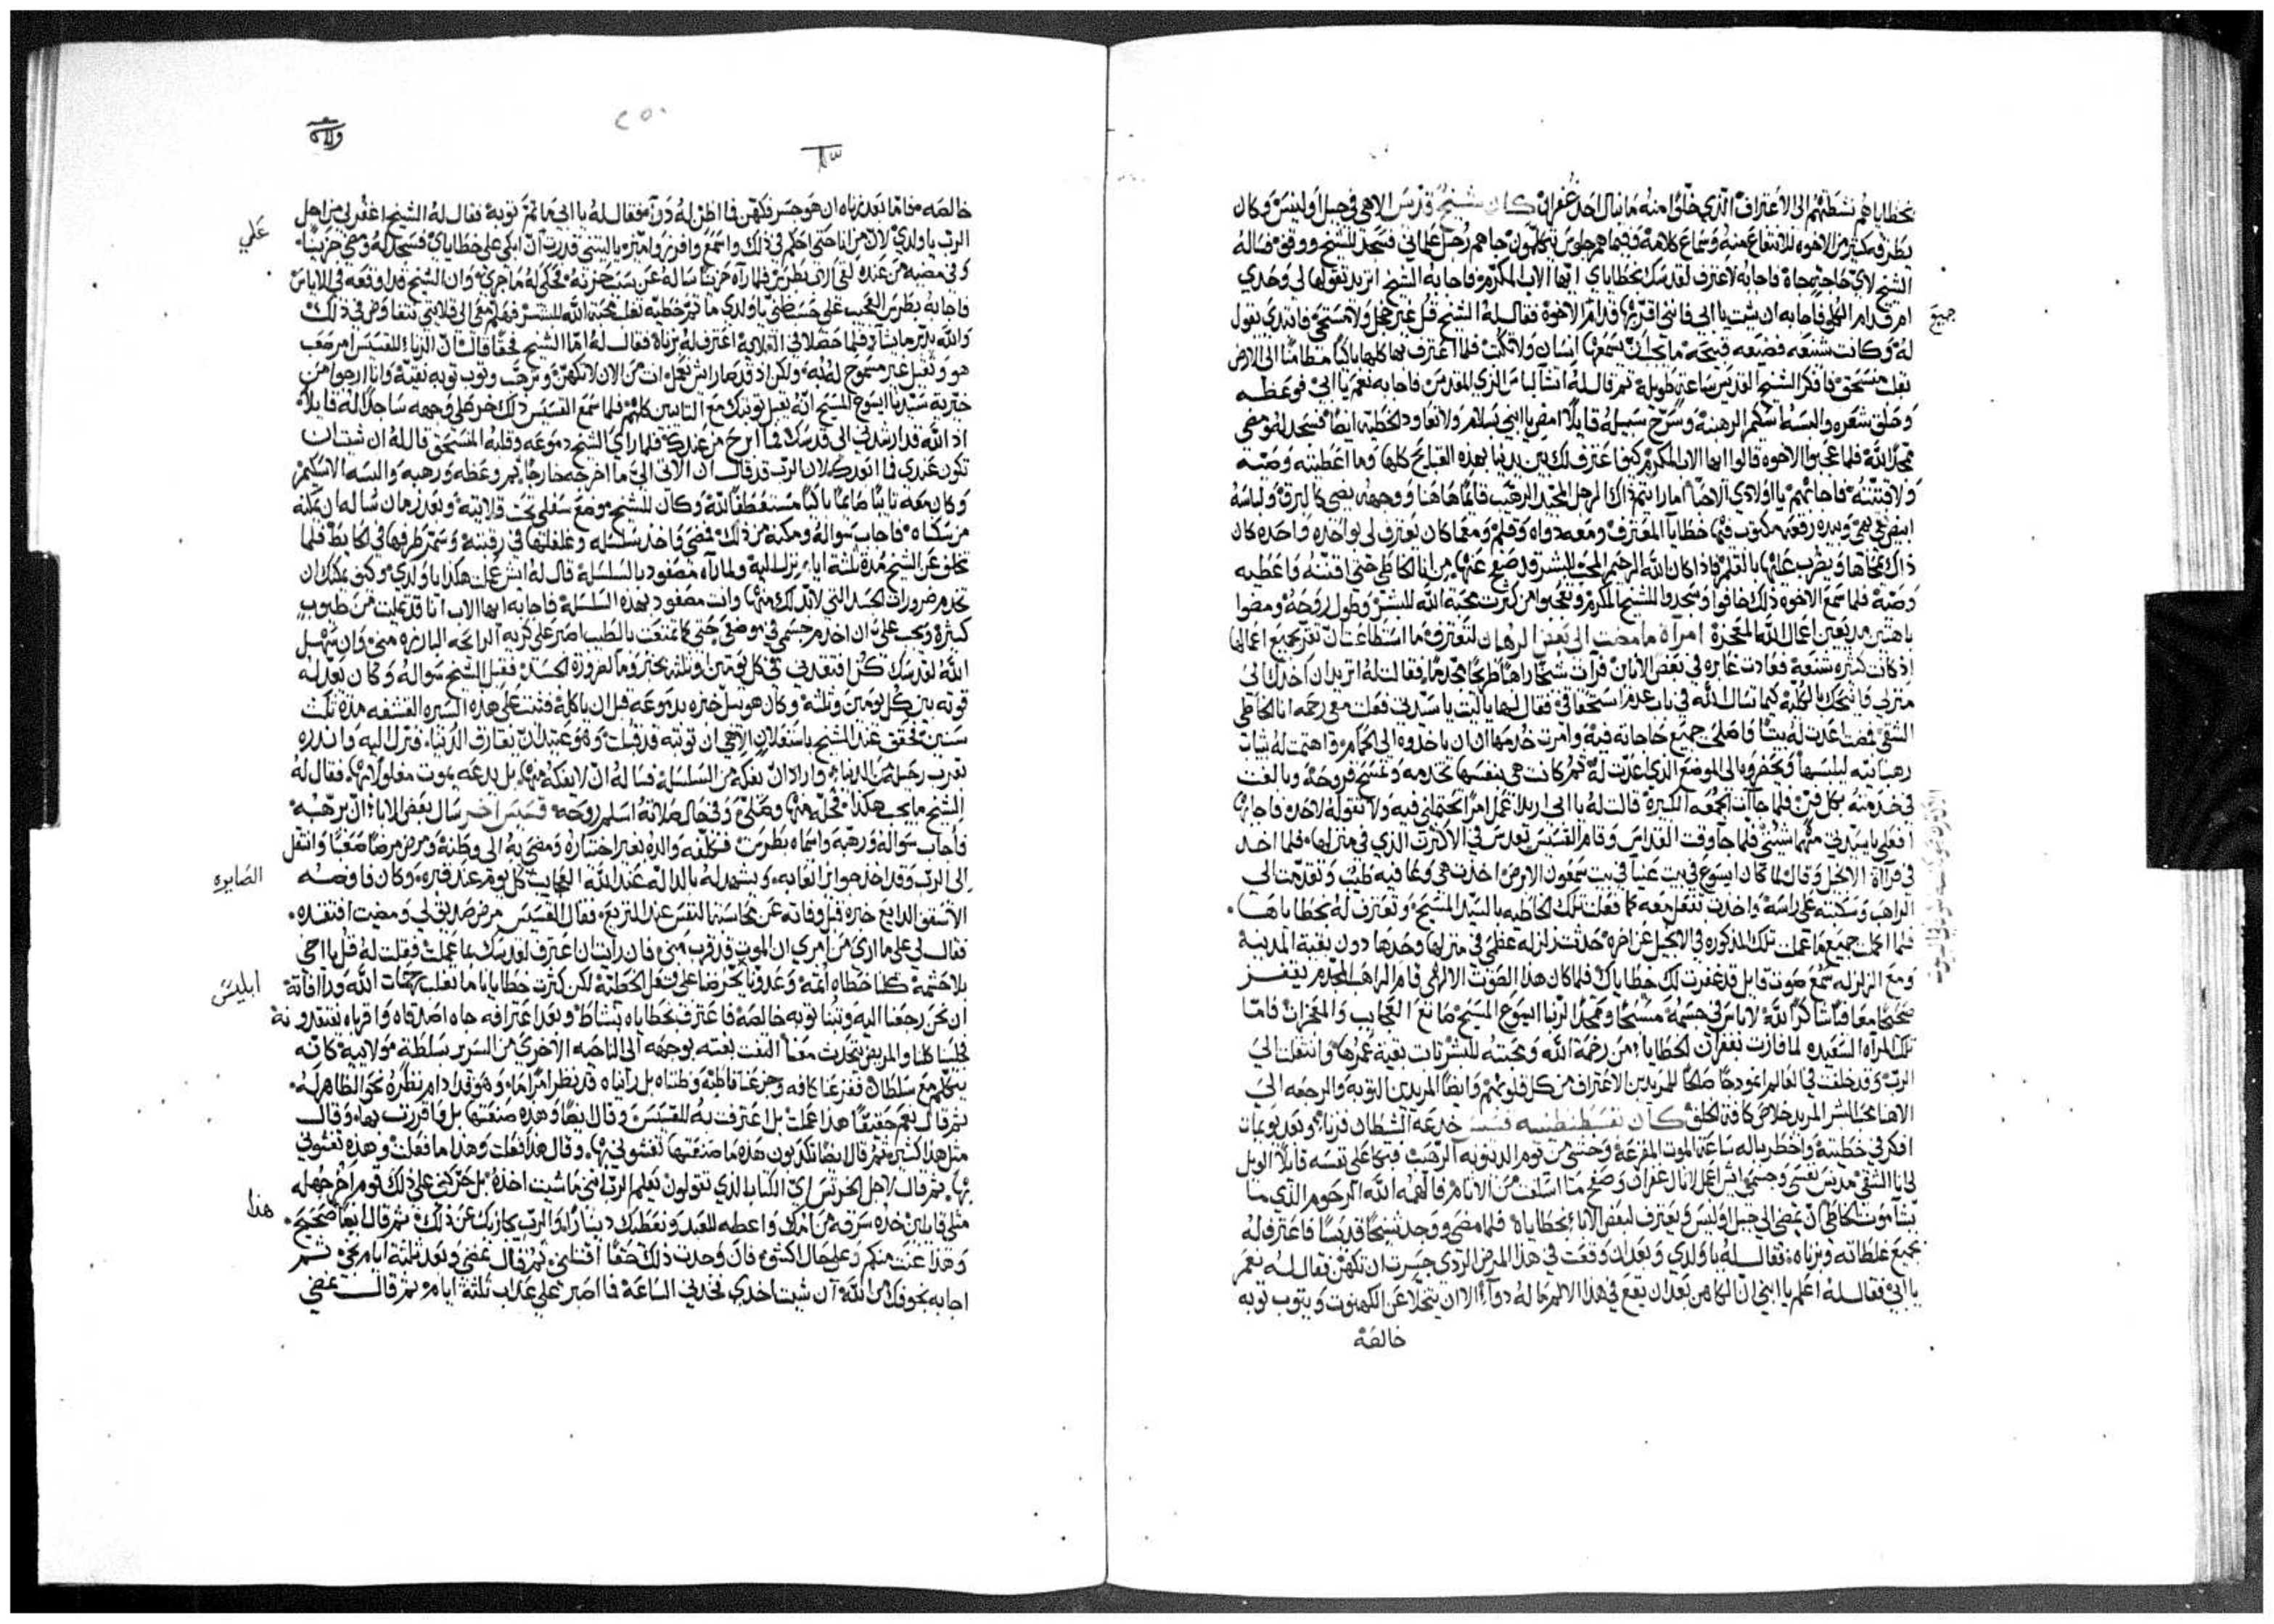 بخطاياهم نشطتهم الى الاعتراف الذي خلوًا منه ما نال احد غفران كان شيخ قديس الاهي في جبل اوليتس وكان
كثير من الاخوه للانتفاع منه وسماع كلامه وفيما هم جلوس يتكلمون جاهم رجل علماني فسجد للشيخ ووقف فساله
الشيخ لاي حاجة جاه فاجابه لاعترف لقدسك بخطاياي ايها الاب المكرم فاجابه الشيخ اتريد تقولها لي وحدي
ام قدام الكل فاجابه ان شيت يا ابي فانني اقر بها قدام الاخوة فقال له الشيخ قل غير خجل ولا مستحي فابتدى يقول
جميع
له وكانت شنيعه فضيعه قبيحه ما يجب ان يسمعها انسان ولا تكتب فلما اعترف بها كلها باكيًا مطامنًا الى الارض
بقلب منسحق فافكر الشيخ القديس ساعة طويلة ثم قال له اتشا لباس الزي المقدس فاجابه نعم يا ابي فوعظه
وحلق شعره والبسه اسكيم الرهبنة وسرح سبيله قايلا امض يا ابني بسلام ولا تعاود الخطية ايضا فسجد له ومضى
ممجدًا لله فلما عجبوا الاخوه قالوا ايها الاب المكرم كيف اعترف لك بين يدينا بهذه القبايح كلها وما اعطيته وصية
ولا قننته فاجابهم يا اولادي الاحبا اما رايتم ذاك الرجل المجيد الرهيب قايمًا هاهنا ووجهه يضي كالبرق ولباسه
ابيض بهي وبيده رقعه مكتوب فيها خطايا المعترف ومعه دواه وقلم ومهما كان يعترف لي بواحده واحده كان
ذاك يمحاها ويضرب عليها بالقلم فاذا كان الله الرحيم المحب البشر قد صفح عنها من انا الخاطي حتى اقننه واعطيه
وصية فلما سمع الاخوه ذلك خافوا وسجدوا للشيخ المكرم وتعجبوا من كثرت محبة الله للبشر وطول روحه ومضوا
باهتين مرتعين اعمال الله المعجزة امرآة ما مضت الى بعض الرهبان لتعترف وما استطاعت ان تقر بجميع اعمالها
اذ كانت كثيره شنعة فعادت عابره في بعض الايام فرآت شيخًا راهبًا طريحًا مجذمًا فقالت له اتريد ان اخدك الى
منزلي فانيحك بالكلية كما نسال الله في باب عدم استحقاقي فقال لها يا ليت يا ستي فعلت معي رحمه انا الخاطي
الشقي فمضت اعدت له بيتًا واصلحت جميع حاجاته فيه وامرت خدمها ان ياخذوه الى الحمام واهتمت له بثياب
رهبانيه ليلبسها ويحضروه الى الموضع الذي اعدت له ثم كانت هي بنفسها تخدمه وتمسح قروحه وبالغت
في خدمته بكل فن فلما جآت الجمعه الكبيرة قالت له يا ابي اريد اعمل امرًا احتملني فيه ولا تقوله لاحد فاجابها
افعلي يا ستي مهما شيتي فلما جا وقت القداس وقام القسيس يقدس في الذي في منزلها فلما اخد
في قرآة الانجيل وقال لما كان ايسوع في بيت عنيا في بيت سمعون الابرص اخذت هي وعا فيه طيب وتقدمت الى
الراهب وسكبته على راسه واخذت تفعل معه كما فعلت تلك الخاطيه بالسيد المسيح وتعترف له بخطاياها
فلما اكملت جميع ما عملت تلك المذكوره في الانجيل عن اخره حدثت زلزله عظمى في منزلها وحدها دون بقية المدينة
ومع الزلزله سمع صوت قايل قد غفرت لك خطاياك فلما كان هذا الصوت الالهي قام الراهب المجذم يقفز
صحيحًا معافًا شاكرًا لله لا باس في جسمه مسبحًا وممجدًا لربنا ايسوع المسيح صانع العجايب والمعجزات فاما
تلك المرآه السعيده لما فازت بغفران الخطايا من رحمة الله ومحبته للبشر تابت بقية عمرها وانتقلت الى
الرب وقد خلفت في العالم انموذجًا صالحًا للمريدين الاعتراف من كل قلوبهم وايضًا المريدين التوبه والرجعه الى
الاهنا محب البشر المريد خلاص كافة الخلق كان بقسطنطينيه قسيس خدعه الشيطان فزنا وبعد يوم بات
افكر في خطيته واخطر بباله ساعة الموت المفزعة وخشي من يوم الدينونه الرهيب فبكا على نفسه قايلًا الويل
لي انا الشقي مدنس نفسي وجسمي ايش اعمل لانال غفران وصفح ما اسلفت من الاثام فالهمه الله الرحوم الذي ما
يشآ موت الخاطي ان يمضي الى جبل اوليتس ويعترف لبعض الابا بخطاياه فلما مضى ووجد شيخًا قديسًا فاعترف له
بجميع غلطاته وزناه فقال له يا ولدي وبعد ان وقعت في هذا المرض الردي جسرت ان تكهن فقال له نعم
يا ابي فقال له اعلم يا ابني ان الكاهن بعد ان يقع في هذا الالم ما له دوآ الا ان يتخلا عن الكهنوت ويتوب توبه
خالصة
٢٥٠
خالصه فاما بعد زناه ان هو جسر فكهن فما اظن له دوآ فقال له يا ابي ما ثم توبة فقال له الشيخ اغفر لي من اجل
الرب يا ولدي لان من انا حتى احكم في ذلك واسمع وافرز واميز يا ليتني قدرت ان ابكي على خطاياي فسجد له ومضى حزينًا
علي
وفي مضيه من عنده لقي الاب بطرس فلما رآه حزينًا ساله عن سبب حزنه فحكى له ما جرى وان الشيخ قد اوقعه في الاياس
فاجابه بطرس العجب على يا ولدي ما ثم خطيه تغلب محبة الله للبشر فهلم معي الى قلايتي نتفاوض في ذلك
والله يدبر ما يشآ فلما حصلا في القلايه اعترف له بزناه فقال له اما الشيخ فحقًا قال ان الزناء للقسيس امر صعب
هو وثقيل غير مسموح له به ولكن اذ قد صار ايش نعمل انت من الان لا تكهن وترهب وتوب توبه نقية وانا ارجوا من
خيرية سيدنا ايسوع المسيح انه يقبل توبتك مع التايبين كلهم فلما سمع القسيس ذلك خر على وجهه ساجدًا له قايلاً
اذ الله قد ارشدني الى قدسك فما ابرح من عندك فلما راى الشيخ دموعه وقلبه المنسحق قال له ان شيت ان
تكون عندي فما ابعدك لان الرب قد قال ان الاتي الي ما اخرجه خارجًا ثم وعظه ورهبه والبسه الاسكيم
وكان معه تايبًا صايمًا باكيًا مستعطفًا لله وكان للشيخ موضع سفلي تحت قلايته وبعد زمان ساله ان يمكنه
من سكناه فاجاب سواله ومكنه من ذلك فمضى واخذ سلسله وغلغلها في رقبته وسمر طرفها في الحايط فلما
تخلف عن الشيخ مدة ثلثة ايام نزل اليه ولما رآه مصفود بالسلسله قال له ايش عملت هكذا يا ولدي وكيف يمكنك ان
تخدم ضرورات الجسد التي لابد لك منها وانت مصفود بهذه السلسلة فاجابه ايها الاب انا قد عملت من طيوب
كثيرة ويجب علي ان اخدم جسمي في موضعي حتى كما تمتعت بالطيب اصبر على كريه الرايحه البارزه مني وان يتمهل
الله لقدسك كن افتقدني في كل يومين او ثلثه بخبز وما لضرورة الجسد فقبل الشيخ سواله وكان يعد له
قوته بين كل يومين وثلثه وكان هو يبل خبزه بدموعه قبل ان ياكله فثبت على هذه السيره القشفه مدة ثلث
سنين فتحقق عند الشيخ باستعلان الاهي ان توبته قد قبلت وهو عتيد ان يفارق الدنيا فنزل اليه وانذره
بقرب رحيله من الدنيا واراد ان يفكه من السلسله فساله ان لا يفكه منها بل يدعه يموت مغلولًا بها فقال له
الشيخ ما يجب هكذا فحله منها وصلى وفي حال صلاته اسلم روحه قسيس اخر سال بعض الابا ان يرهبه
فاجاب سواله ورهبه واسماه بطرس فكلفه والده بغير اختياره ومضى به الى وطنه ومرض مرضًا صعبًا وانتقل
الى الرب وقد اخذ جوايز اتعابه ويشهد له بالداله عند الله العجايب كل يوم عند قبره وكان فاوضه
الصايره
الاسقف الدايع خبره قبل وفاته عن محاسبتها النفس عند النزع فقال القسيس مرض صديق لي ومضيت افتقده
فقال لي على ما ارى من امري ان الموت قد قرب مني فان رايت ان اعترف لقدسك بما عملت فقلت له قل يا اخي
بلا حشمة كلنا خطاه اثمه وعدونا يحرضنا على فعل الخطية لكن كثرت خطايانا ما تغلب رحمات الله ورآفاته
ابليس
ان نحن رجعنا اليه وتبنا توبه خالصة فاعترف بخطاياه بنشاط وبعد اعترافه جاه اصدقاه واقرباه يفتقدونه
فجلسنا كلنا والمريض يتحدث معنا التفت بغتة بوجهه الى الناحيه الاخرى من السرير بسلطة مولانيه كانه
يتكلم مع سلطان ففزعنا كافه وجزعنا فاطبه وظنناه بل رآيناه قد ينظر امرًا ما وهو قد ادام نظره نحو الظاهر له
ثم قال نعم حقيقًا هذا عملت بل اعترفت به للقسيس وقال ايضًا وهذه صنعتها بل واقررت بها وقال
مثل هذا كثيره ثم قال ايضًا تكذبون هذه ما صنعتها تغشوني بها وقال هذا فعلت وهذا ما فعلت وهذه تغشوني
بها ثم قال لاجل الخرتيس اي الكتاب الذي تقولون يعلم الرب انني ما شيت اخذه بل حركني على ذلك قوم اخر جهله
مثلي قايلين خذه سرقه من امرك واعطه للعبد ونعطيك دينارًا والرب يجازيك عن ذلك ثم قال ايضًا صحيح
هذا
وهذا غبت منكم وعلى حال كشيء فان وجدت ذلك حقًا اقبلني ثم قال يمضي وبعد ثلثة ايام يجي ثم
اجابه بخوفك من الله ان شيت اخذي فخذني الساعة فما اصبر على عذاب ثلثة ايام ثم قال يمضي